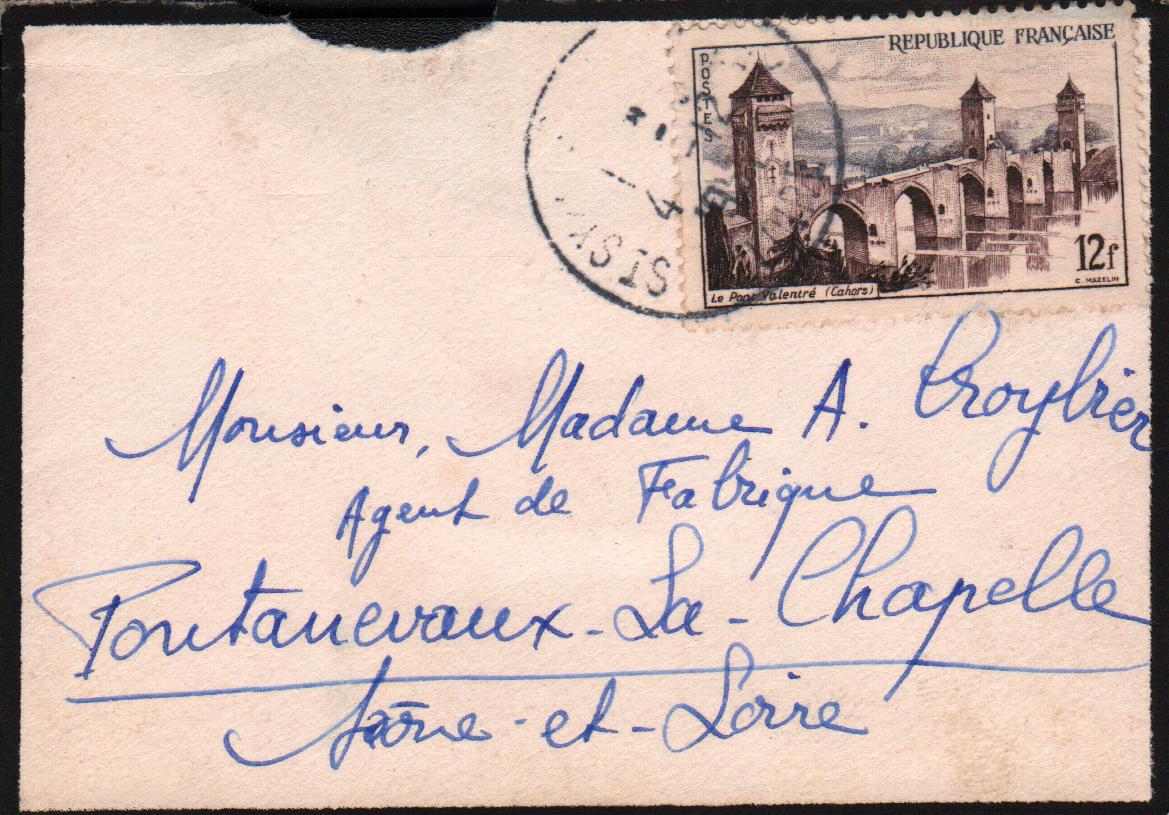 REPUBLIQUE FRANÇAISE
POSTES
12f
Le Pont Valentré (Cahors)
C. MAZELIN
Monsieur, Madame A. Croybier
Agent de Fabrique
Pontanevaux-La-Chapelle
Saône-et-Loire